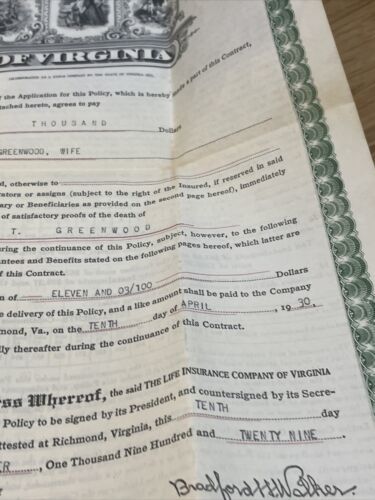 OF VIRGINIA
INCORPORATED AS A STOCK COMPANY BY THE STATE OF VIRGINIA, 1871.
the Application for this Policy, which is hereby made a part of this Contract,
ttached hereto, agrees to pay
THOUSAND Dollars
GREENWOOD, WIFE
d, otherwise to
rators or assigns (subject to the right of the Insured, if reserved in said
ary or Beneficiaries as provided on the second page hereof), immediately
of satisfactory proofs of the death of
T. GREENWOOD
uring the continuance of this Policy, subject, however, to the following
antees and Benefits stated on the following pages hereof, which latter are
f this Contract.
n of ELEVEN AND 03/100 Dollars
e delivery of this Policy, and a like amount shall be paid to the Company
mond, Va., on the TENTH day of APRIL, 1930,
lly thereafter during the continuance of this Contract.
ess Whereof, the said THE LIFE INSURANCE COMPANY OF VIRGINIA
Policy to be signed by its President, and countersigned by its Secre-
ttested at Richmond, Virginia, this TENTH day
ER, One Thousand Nine Hundred and TWENTY NINE.
Bradford H Walker